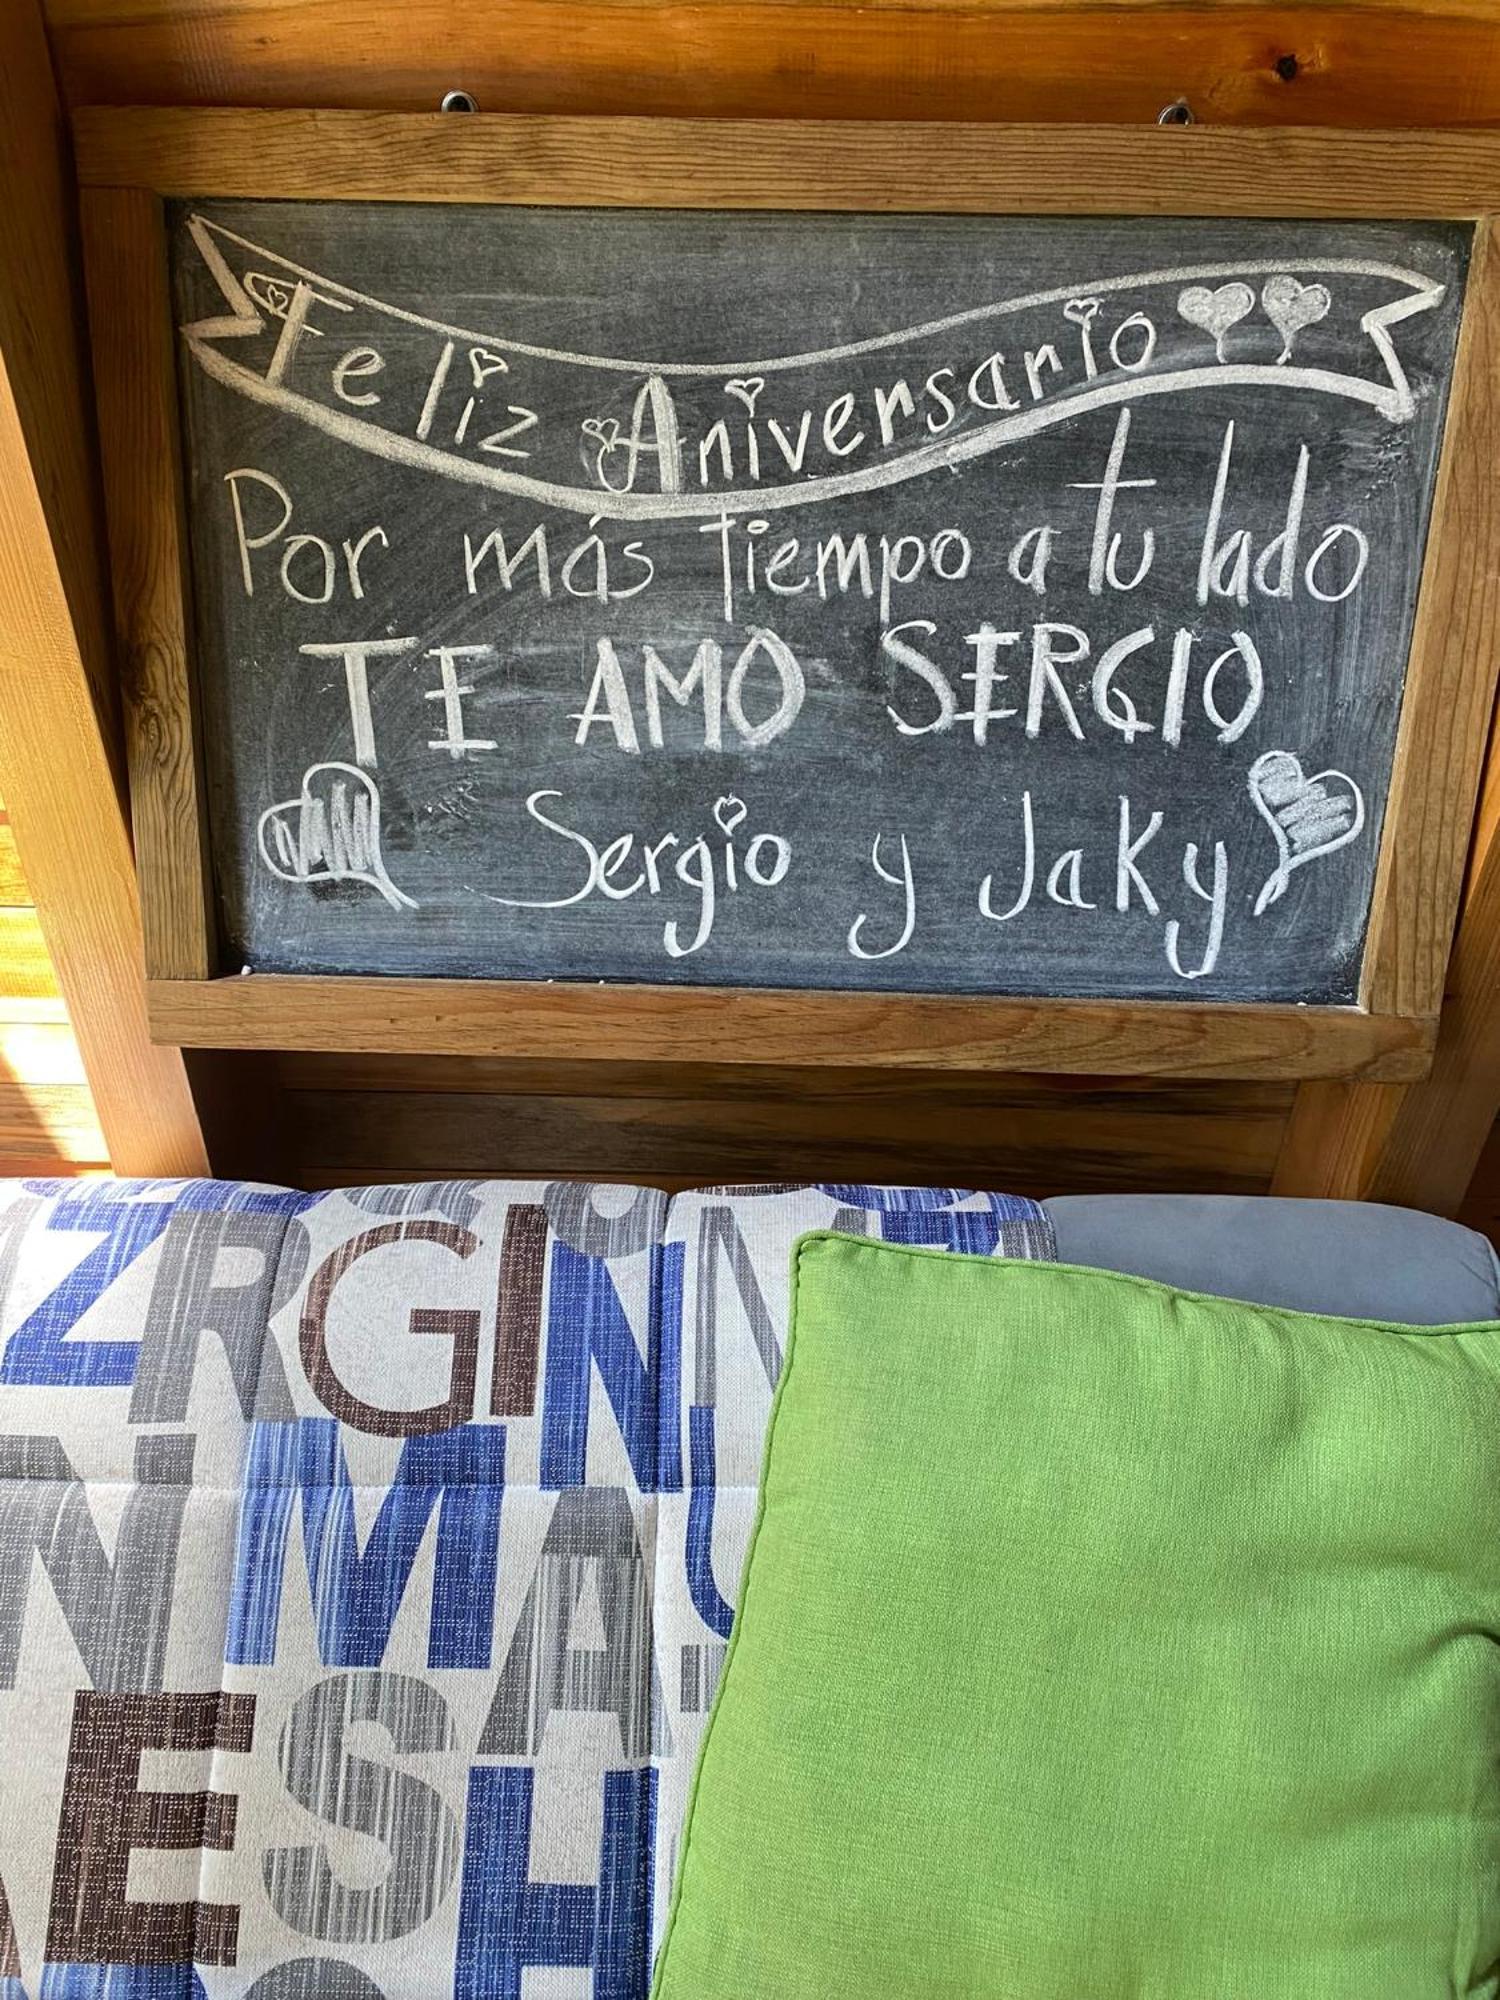 Feliz Aniversario
Por más tiempo a tu lado
TE AMO SERGIO
Sergio y Jaky
Z R G I N
N M A U
E S H